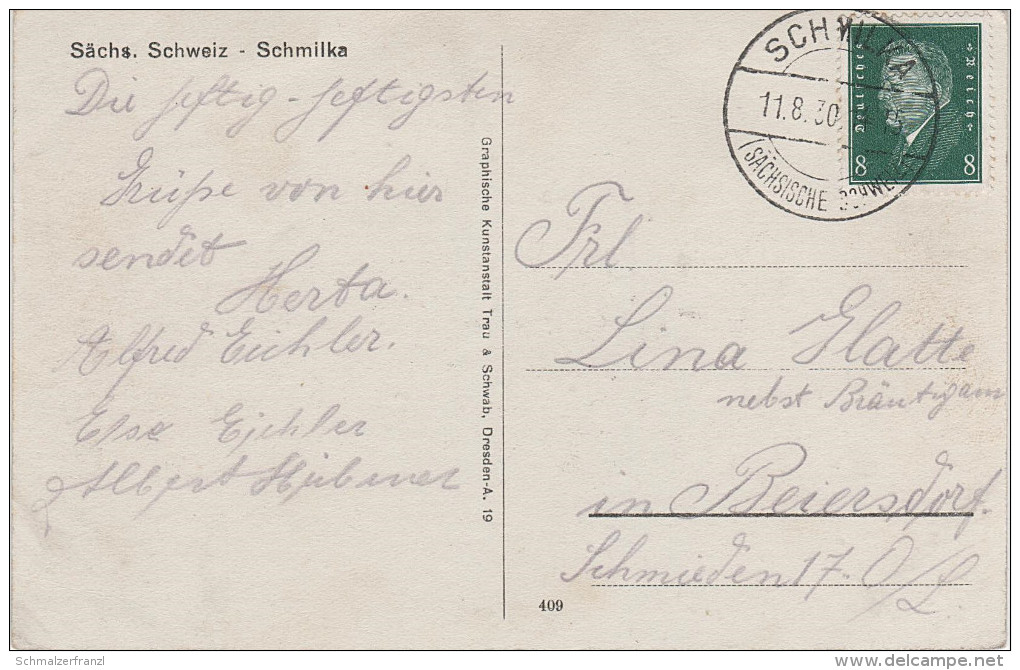 Sächs. Schweiz - Schmilka
Die heftig-heftigsten
Grüße von hier
sendet
Herta.
Alfred Eichler.
Else Eichler
Albert Hübner
Graphische Kunstanstalt Trau & Schwab, Dresden-A. 19
SCHMILKA
11.8.30
(SÄCHSISCHE SCHWEIZ)
Deutsches Reich
8 8
Frl.
Lina Glatte
nebst Bräutigam
in Beiersdorf.
Schmieden 17. O/L.
409
Schmalzerfranzl
delcampe.net